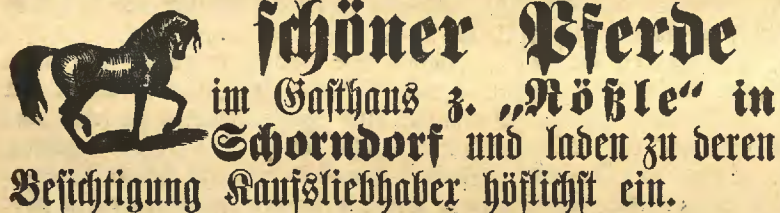 schöner Pferde
im Gasthaus z. „Rößle“ in
Schorndorf und laden zu deren
Besichtigung Kaufsliebhaber höflichst ein.